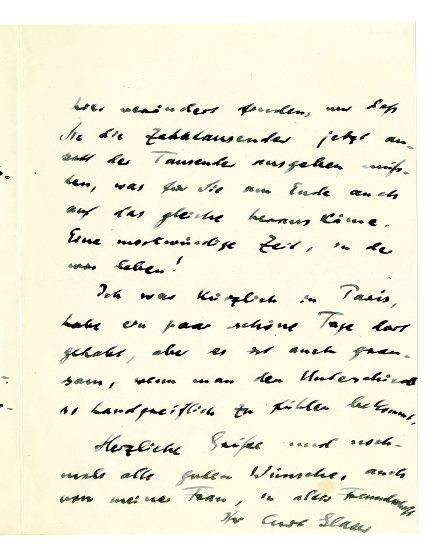 hier verändert finden, nur daß
Sie die Zehntausender jetzt an-
statt der Tausender ausgeben müß-
ten, was für Sie am Ende auch
auf das gleiche heraus käme.
Eine merkwürdige Zeit, in der
wir leben!
Ich war kürzlich in Paris,
habe ein paar schöne Tage dort
gehabt, aber es ist auch grau-
sam, wenn man den Unterschied
so handgreiflich zu fühlen bekommt.
Herzliche Grüße und noch-
mals alle guten Wünsche, auch
von meiner Frau, in alter Freundschaft
Ihr Curt Glaser